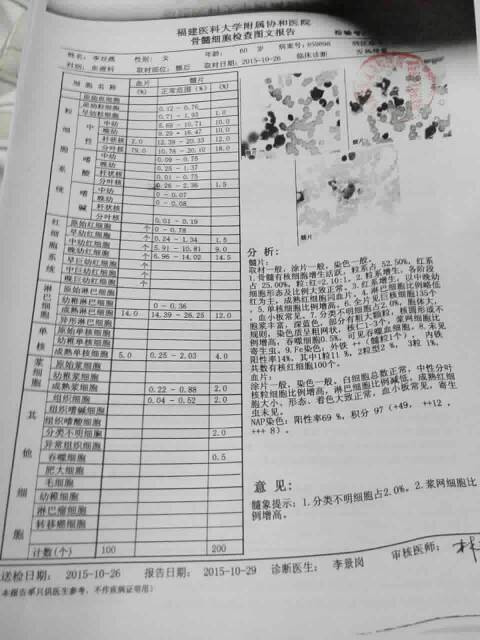 福建医科大学附属协和医院
骨髓细胞检查图文报告
性别： 女 年龄： 60 岁 病案号：859898
取材部位：髂后 取材日期：2015-10-26 临床诊断
细 胞 名 称 血片(%) 髓片
正常范围(%) (%)
原始血细胞
原始粒细胞 0.12 - 0.76
早幼粒细胞 1.0
中性 中幼 10.0
晚幼 10.0
杆状核 2.0 12.0
分叶核 79.0 18.0
嗜酸 中幼 0.09 - 0.75
晚幼 0.25 - 1.37
杆状核 0.01 - 0.75
分叶核 1.5
嗜碱 中幼 0 - 0.07
晚幼 0 - 0.08
杆状核
分叶核 0.01 - 0.19
红细胞系统 原始红细胞 个 0 - 0.78
早幼红细胞 个 0.24 - 1.34 1.5
中幼红细胞 个 5.91 - 10.81 9.0
晚幼红细胞 个 6.96 - 14.02 14.5
早巨幼红细胞 个
中巨幼红细胞 个
晚巨幼红细胞 个
淋巴细胞 原始淋巴细胞
幼稚淋巴细胞 0 - 0.36
成熟淋巴细胞 14.0 14.39 - 26.25 12.0
异形淋巴细胞
单核 原始单核细胞
幼稚单核细胞
成熟单核细胞 5.0 0.25 - 2.03 4.0
浆细胞 原始浆细胞
幼稚浆细胞
成熟浆细胞 0.22 - 0.88 2.0
其他细胞 组织细胞 0.04 - 0.52 2.0
组织嗜碱细胞
组织嗜酸细胞
分类不明细胞 2.0
异常组织细胞
吞噬细胞 0.5
肥大细胞
毛细胞
幼稚细胞
淋巴瘤细胞
转移癌细胞
计数(个) 100 200
髓片
分 析：
髓片：
取材一般，涂片一般，染色一般。
1.骨髓有核细胞增生活跃，粒系占 52.50%，红系
占 25.00%，粒:红=2.10:1。2.粒系增生，各阶段
细胞形态及比例大致正常。3.红系增生，以中晚幼
红为主，成熟红细胞同血片。4.淋巴细胞比例略低
。5.单核细胞比例增高。6.全片见巨核细胞135个
，血小板常见。7.分类不明细胞占2.0%，胞体大，
胞浆丰富，深蓝色，部分有粗大颗粒，核圆形或不
规则，染色质呈粗网状，核仁1-3个，浆网细胞比
例增高，吞噬细胞0.5%，可见吞噬血细胞。8.未见
寄生虫。9.Fe染色：外铁 ++（髓粒1个），内铁
阳性率14%，其中1粒11 %，2粒型2 %，3粒 1%，
共数有核红细胞100个。
血片：
涂片一般，染色一般，白细胞总数正常，中性分叶
核粒细胞比例增高，淋巴细胞比例减低，成熟红细
胞大小、形态、着色大致正常，血小板常见，寄生
虫未见。
NAP染色：阳性率69 %，积分 97（+49， ++12 ，
+++ 8）。
意 见：
髓象提示：1.分类不明细胞占2.0%。2.浆网细胞比
例增高。
送检日期： 2015-10-26 报告日期： 2015-10-29 诊断医生： 李景岗 审核医师：
本报告单只供医生参考，不作疾病证明用！